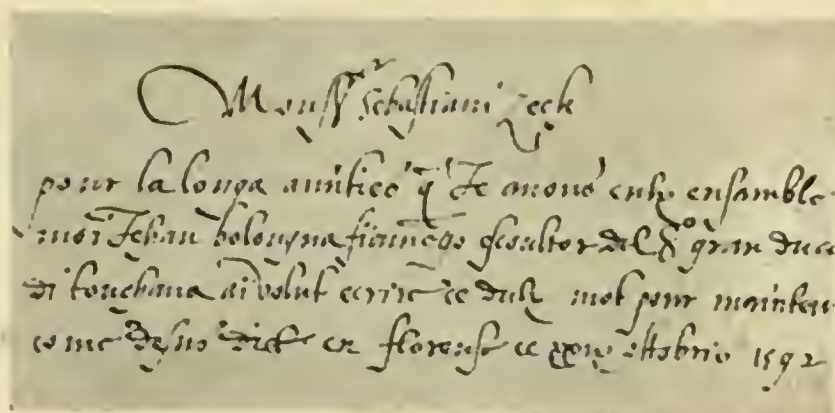 Monssr sebastiani zeck
pour la longa amitiee q̃ Je avons' entr ensamble
moi Jehan bolongna fiamengo scoultor del So gran duca
di touschana ai volut ecrire ce duls mot pour
come desus dict en florense ce ottobrio 1592